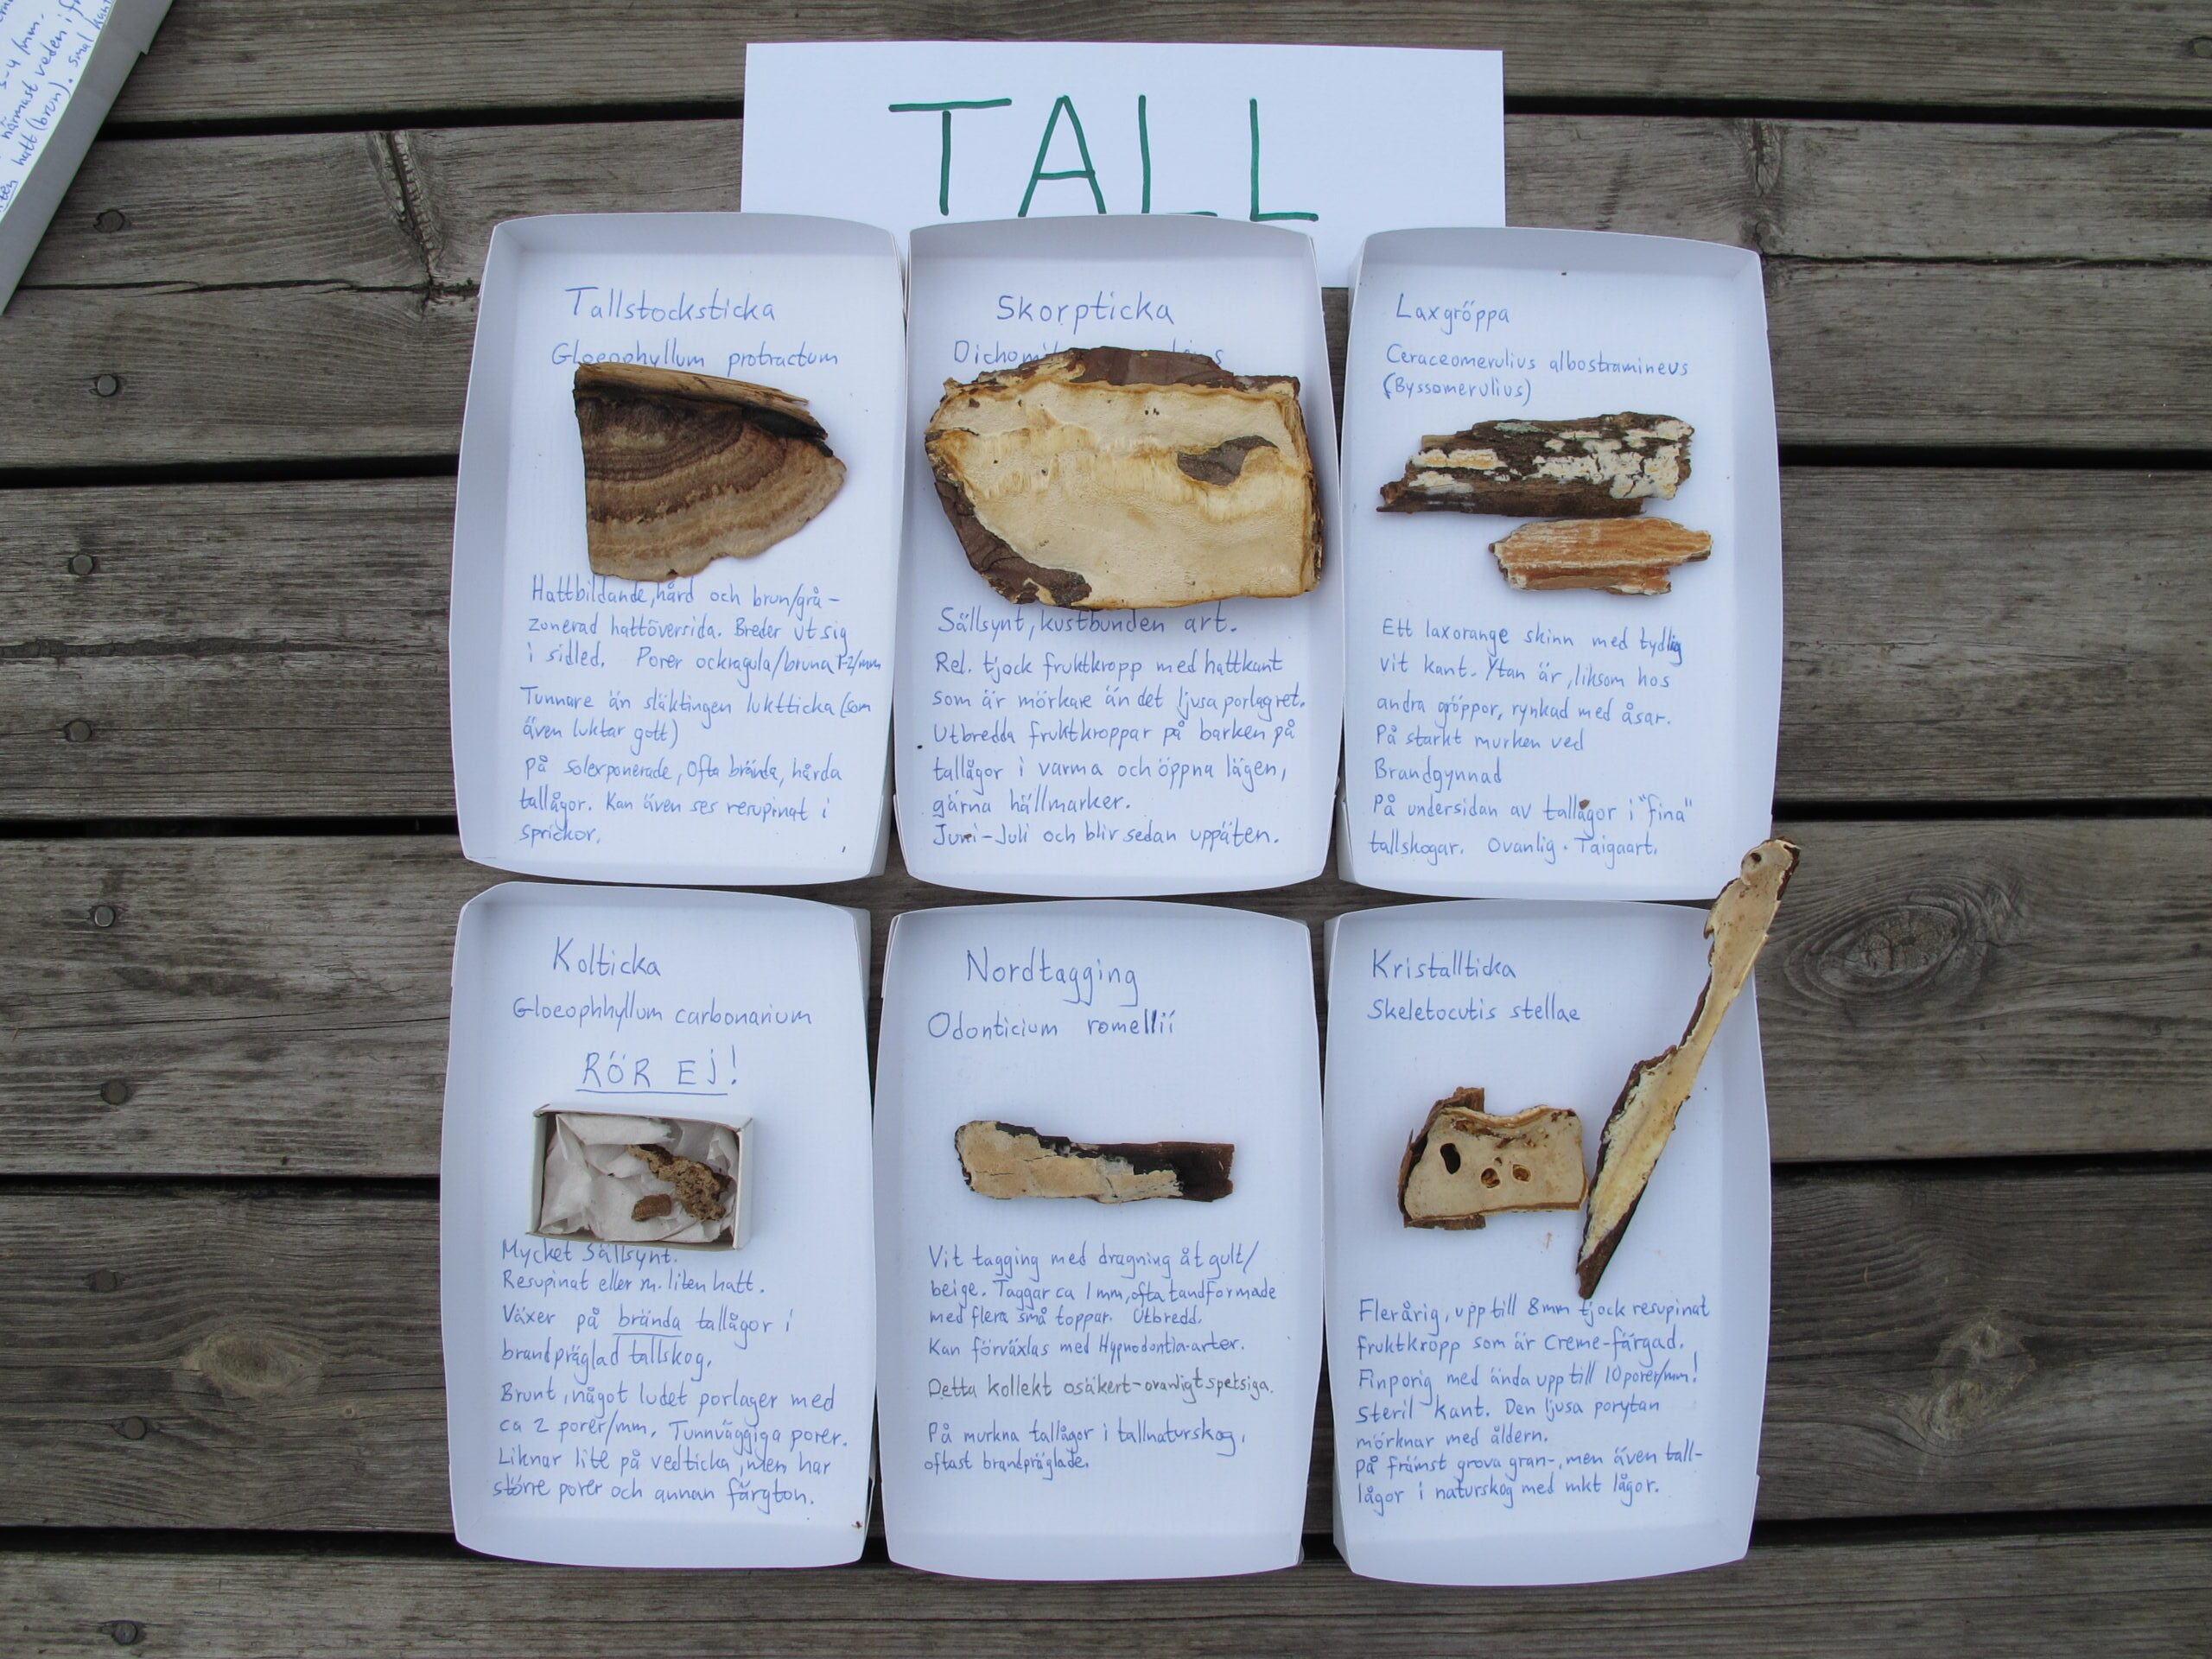 s-4 /mm.
närmast veden i
hatt (brun). smal kant
TALL
Tallstocksticka
Gloeophyllum protractum
Hattbildande, hård och brun/grå-
zonerad hattöversida. Breder ut sig
i sidled. Porer ockragula/bruna 1-2/mm
Tunnare än släktingen luktticka (som
även luktar gott)
På solexponerade, ofta brända, hårda
tallågor. Kan även ses resupinat i
sprickor.
Skorpticka
Sällsynt, kustbunden art.
Rel. tjock fruktkropp med hattkant
som är mörkare än det ljusa porlagret.
Utbredda fruktkroppar på barken på
tallågor i varma och öppna lägen,
gärna hällmarker.
Juni-Juli och blir sedan uppäten.
Laxgröppa
Ceraceomerulius albostramineus
(Byssomerulius)
Ett laxorange skinn med tydlig
vit kant. Ytan är, liksom hos
andra gröppor, rynkad med åsar.
På starkt murken ved
Brandgynnad
På undersidan av tallågor i "fina"
tallskogar. Ovanlig. Taigaart.
Kolticka
Gloeophhyllum carbonarium
RÖR EJ!
Mycket Sällsynt.
Resupinat eller m. liten hatt.
Växer på brända tallågor i
brandpräglad tallskog.
Brunt, något ludet porlager med
ca 2 porer/mm. Tunnväggiga porer.
Liknar lite på vedticka, men har
större porer och annan färgton.
Nordtagging
Odonticium romellii
Vit tagging med dragning åt gult/
beige. Taggar ca 1 mm, ofta tandformade
med flera små toppar. Utbredd.
Kan förväxlas med Hypnodontia-arter.
Detta kollekt osäkert-ovanligt spetsiga.
På murkna tallågor i tallnaturskog,
oftast brandpräglade.
Kristallticka
Skeletocutis stellae
Flerårig, upp till 8mm tjock resupinat
fruktkropp som är Creme-färgad.
Finporig med ända upp till 10 porer/mm!
Steril kant. Den ljusa porytan
mörknar med åldern.
På främst grova gran-, men även tall-
lågor i naturskog med mkt lågor.